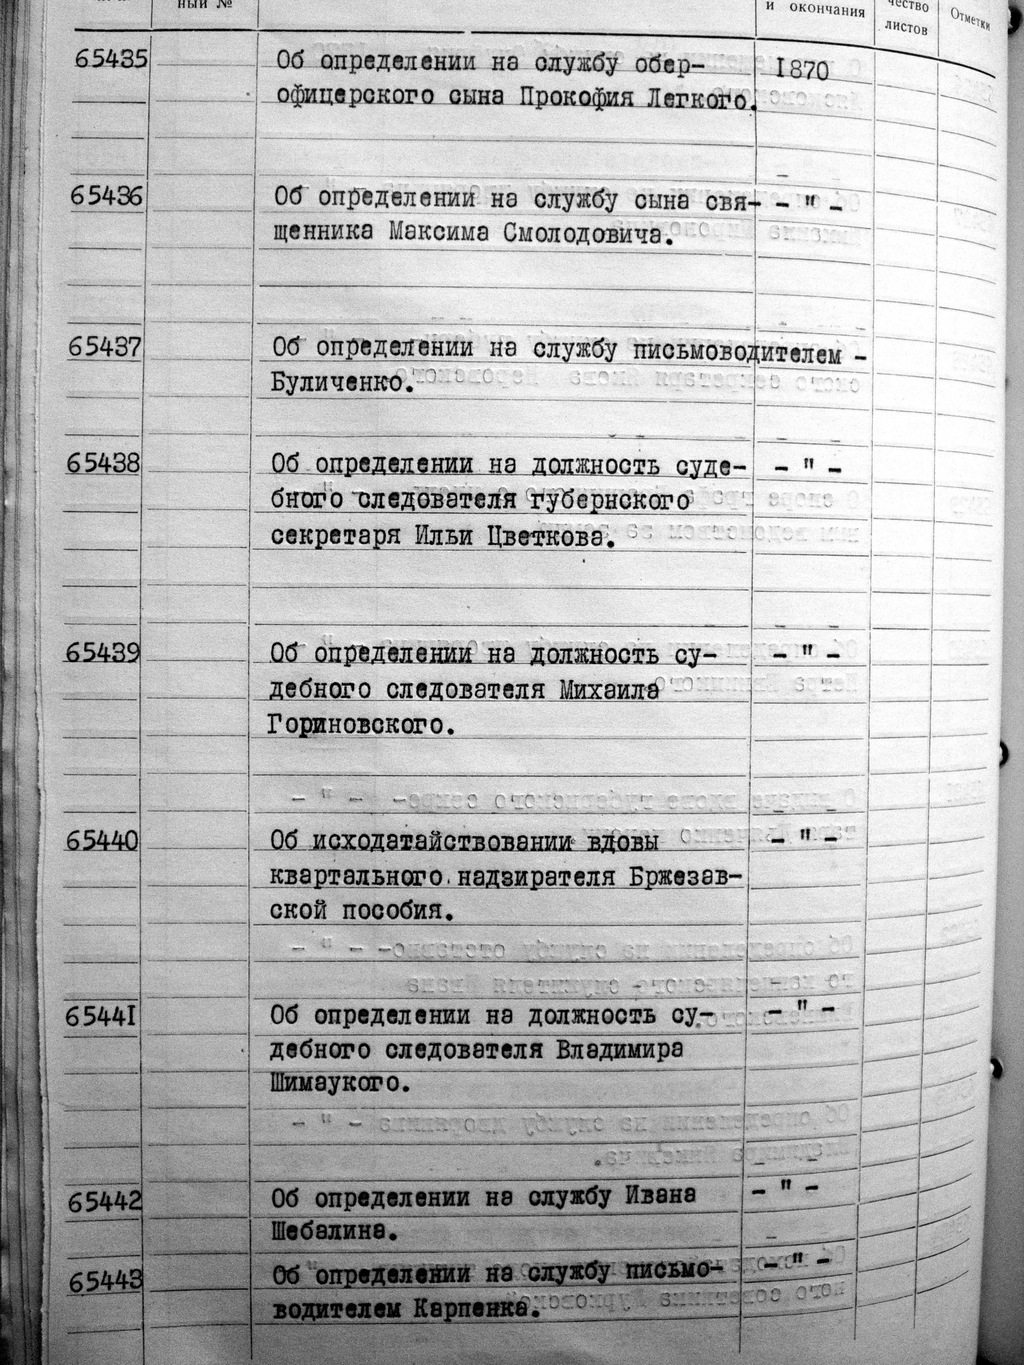 ный №
и окончания
чество
листов
Отметки
65435 Об определении на службу обер- 1870
офицерского сына Прокофия Легкого.
65436 Об определении на службу сына свя- - " -
щенника Максима Смолодовича.
65437 Об определении на службу письмоводителем -
Буличенко.
65438 Об определении на должность суде- - " -
бного следователя губернского
секретаря Ильи Цветкова.
65439 Об определении на должность су- - " -
дебного следователя Михаила
Гориновского.
65440 Об исходатайствовании вдовы - " -
квартального надзирателя Бржезав-
ской пособия.
65441 Об определении на должность су- - " -
дебного следователя Владимира
Шимаукого.
65442 Об определении на службу Ивана - " -
Шебалина.
65443 Об определении на службу письмо- - " -
водителем Карпенка.